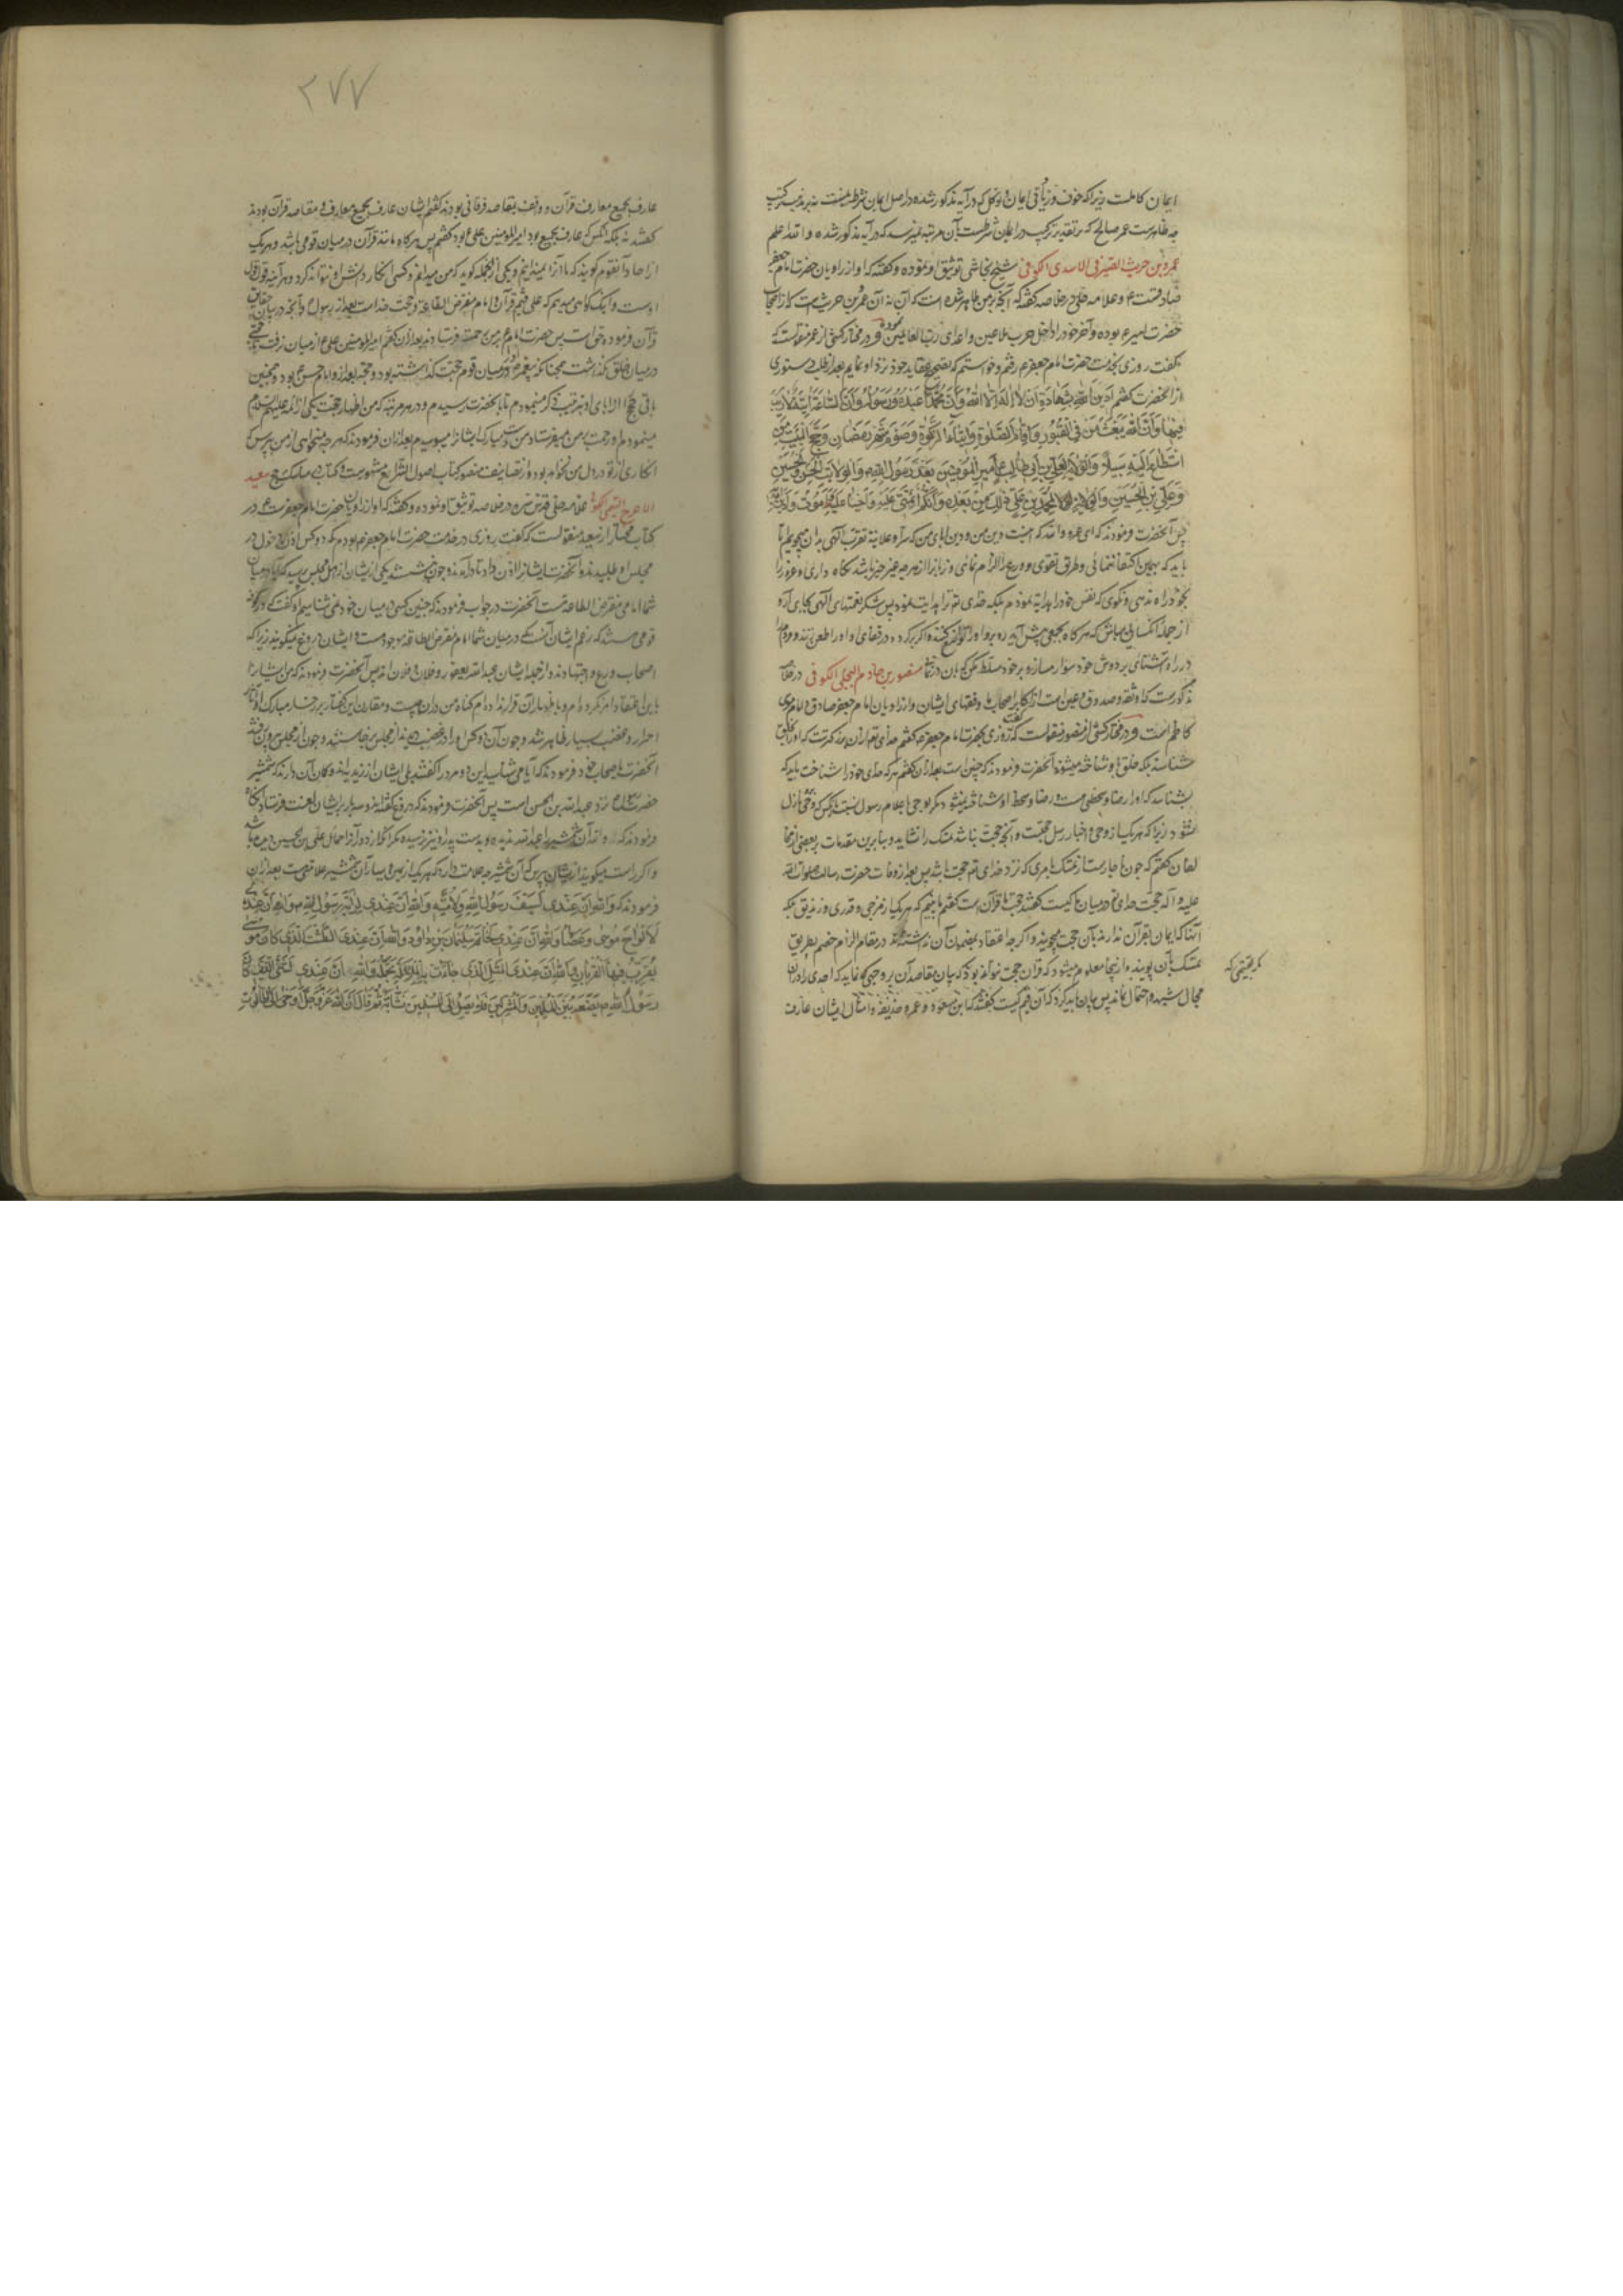 ایمان کاملست زیرا که خوف و زیادتی ایمان و توکل که در آیه مذکور شده در اصل ایمان شرط نیست
چه ظاهرست عمل صالح که بر تقدیر ترکیب در ایمان شرطست بآن مرتبه نیست که در آیه مذکور شده و الله اعلم
عمرو بن حریث الصیرفی الاسدی الکوفی شیخ نجاشی توثیق او نموده و گفته که او از راویان حضرت امام جعفر
صادقست ع و علامه حلی در خلاصه گفته که آنچه بر من ظاهر شده است که آن نه آن عمرو بن حریث است که از اصحاب
حضرت امیر ع بوده و آخر خود را داخل حزب ملاعین و اعدای رب العالمین نموده و در مختار کشی از عمرو منقولست که
گفت روزی بخدمت حضرت امام جعفر ع رفتم و خواستم که تصحیح عقاید خود نزد او نمایم بعد از طلب دستوری
از آنحضرت گفتم ادین الله بشهادة ان لا اله الا الله وان محمدا عبده ورسوله وان الساعة آتیة لا ریب
فیها وان الله یبعث من فی القبور واقام الصلوة وایتاء الزکوة وصوم شهر رمضان وحج البیت من
استطاع الیه سبیلا والولایة لعلی بن ابی طالب امیر المؤمنین بعد رسول الله والولایة للحسن والحسین
وعلی بن الحسین والولایة لمحمد بن علی ولک من بعده وانکم ائمتی علیه احیا وعلیه اموت وادین الله
پس آنحضرت فرمودند که ای عمرو والله که اینست دین من و دین ابای من که سرا و علانیة تقرب الهی بدان میجوییم اما
باید که بهمین اکتفا ننمائی و طریق تقوی و ورع را الزام نمای و زبانرا از هر چه غیر خیر باشد نگاه داری و غره را
بخود راه ندهی و نگوی که نفس خود را هدایة نمودم بلکه خدای تع ترا هدایت نمود پس شکر نعمتهای الهی بجای آر و
از جمله آنکسانی مباش که هر گاه بجمعی پیش آید رو برو او را نکوهش کنند و اگر برگردد در قفای او او را طعن زنند و مردم را
در راه آشنای بر دوش خود سوار مساز و بر خود مسلط مکن منصور بن حازم البجلی الکوفی در خلاصه
مذکورست که او ثقه و صدوق و عین است از اکابر اصحاب ما و فقهای ایشان و از راویان امام جعفر صادق و امام موسی
کاظم است و در مختار کشی از منصور نقلست که گفت روزی بحضرت امام جعفر ع گفتم خدای تعالی از آن بزرگترست که او را بخلق
شناسند بلکه خلق باو شناخته میشوند آنحضرت فرمودند که چنین است بعد از آن گفتم هر که خدای خود را شناخت باید که
بشناسد که او را رضا و سخطی هست و رضا و سخط او شناخته نمیشود مگر بوحی یا اعلام رسول نسبت بآنکس که وحی باو نازل
نشود زیرا که هر یک از وحی و اخبار رسل حجتست و آنچه حجت نباشد تمسک را نشاید و بنابرین مقدمات ببعضی از مخالفان
لفان گفتم که چون ناچارست از تمسک بامری که نزد خدای تع حجت باشد پس بعد از وفات حضرت رسالت صلوات الله
علیه و آله حجت خدای تع در میان ما کیست گفتند حجت ما قرآن است گفتم ما بینیم که هر یک از مرجی و قدری و زندیق بلکه
آنها که ایمان بقرآن ندارند بآن حجت میجویند و اگر چه اعتقاد بمضمون آن نداشته باشند در مقام الزام خصم بطریق
تمسک بآن پویند و از اینجا معلوم میشود که قرآن حجت نتواند بود که بیان مقاصد آن بر وجهی که نماید که احدی را در آن
مجال شبهه و احتمال نماند پس بیان باید کرد که آن قیم کیست گفتند که ابن مسعود و عمر و حذیفه و امثال ایشان عارف
مگر بقیمی که
۲۷۷
عارف بجمیع معارف قرآن و واقف بمقاصد فرقانی بودند گفتم ایشان عارف بجمیع معارف و مقاصد قرآن بودند
گفتند نه بلکه آنکس که عارف بجمیع بود امیر المومنین علی ع بود گفتم پس هر گاه مانند قرآن در میان قومی باشد و هر یک
از احاد آنقوم گویند که ما آنرا نمیدانیم و یکی از آنجمله گوید که من میدانم و کسی انکار دانش او نتواند کرد هر آینه قول قول
اوست و اینک گواهی میدهم که علی قیم قرآن و امام مفترض الطاعة و حجت خداست بعد از رسول و آنچه در بیان حقایق
قرآن فرموده حق است پس حضرت امام ع بر من رحمت فرستادند بعد از آن گفتم امیر المومنین علی ع از میان نرفت تا حجتی
در میان خلق نگذاشت همچنانکه پیغمبر ص در میان قوم حجت گذاشته بود و حجت بعد از او امام حسن ع بود و همچنین
باقی حجج از ابای او بترتیب ذکر مینمودم تا بآنحضرت رسیدم و در هر مرتبه که من اظهار حجت یکی از ائمه علیهم السلام
مینمودم او رحمت بر من میفرستاد و من دست مبارک ایشانرا میبوسیدم بعد از آن فرمودند که هر چه میخواهی از من بپرس که
انکاری از تو در دل من نخواهد بود و از تصانیف منصور کتاب اصول الشرایع مشهورست و کتاب مناسک حج سعید
الاعرج التیمی الکوفی علامه حلی قدس سره در خلاصه توثیق او نموده و گفته که او از راویان حضرت امام جعفرست ع و در
کتاب مختار از سعید منقولست که گفت روزی در خدمت حضرت امام جعفر ع بودم که دو کس اذن دخول در
مجلس او طلبیدند و آنحضرت ایشانرا اذن داد تا درآمدند و چون نشستند یکی از ایشان از اهل مجلس پرسید که آیا در میان
شما امامی مفترض الطاعة هست آنحضرت در جواب فرمودند که چنین کسی در میان خود نمی شناسیم او گفت که در کوفه
قومی هستند که زعم ایشان آنست که در میان شما امام مفترض الطاعة موجودست و ایشان دروغ نمیگویند زیرا که
اصحاب ورع و اجتهادند و از جمله ایشان عبدالله یعفور و فلان و فلان اند پس آنحضرت فرمودند که من ایشانرا
باین اعتقاد امر نکرده ام و باظهار آن قرار نداده ام گناه من در آن چیست و مقارن این گفتار بر رخسار مبارک او آثار
احمرار و غضب بسیار ظاهر شد و چون آن دو کس او را در غضب دیدند از مجلس برخاستند و چون از مجلس بیرون رفتند
آنحضرت باصحاب خود فرمودند که آیا می شناسید این دو مرد را گفتند بلی ایشان از زیدیه اند و گمان آن دارند که شمشیر
حضرت رسالت ص نزد عبدالله بن الحسن است پس آنحضرت فرمودند که دروغ گفته اند و سه بار بر ایشان لعنت فرستاد آنگاه
فرمودند که والله آن شمشیر را عبدالله ندیده و بدست پدر او نیز نرسیده مگر آنکه او را در حمایل علی بن الحسین دیده باشد
و اگر راست میگویند از ایشان بپرس که آن شمشیر چه علامت دارد که هر یک از یمین و یسار آن شمشیر علامتیست بعد از آن
فرمودند که والله ان عندی لسیف رسول الله ولامته والله ان عندی لرایة رسول الله ص والله ان عندی
لالواح موسی وعصاه والله ان عندی لخاتم سلیمان بن داود والله ان عندی الطشت الذی کان موسی
یقرب فیها القربان والله ان عندی المثل الذی جاءت به الملائکة تحمله والله ان عندی للشیء الذی کان
رسول الله ص یضعه بین المسلمین والمشرکین فلا یصل الی المسلمین نشابة ثم قال ان الله عز وجل اوحی الی طالوت